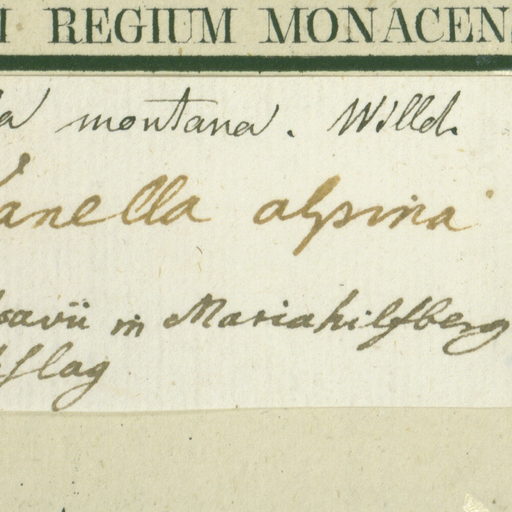 REGIUM MONACEN
montana. Willd.
anella alpina
savii in Mariahilfberg